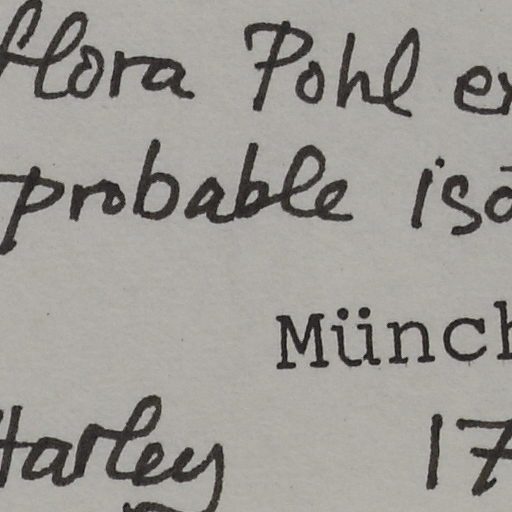 flora Pohl ex
probable iso
Münch
Harley 17